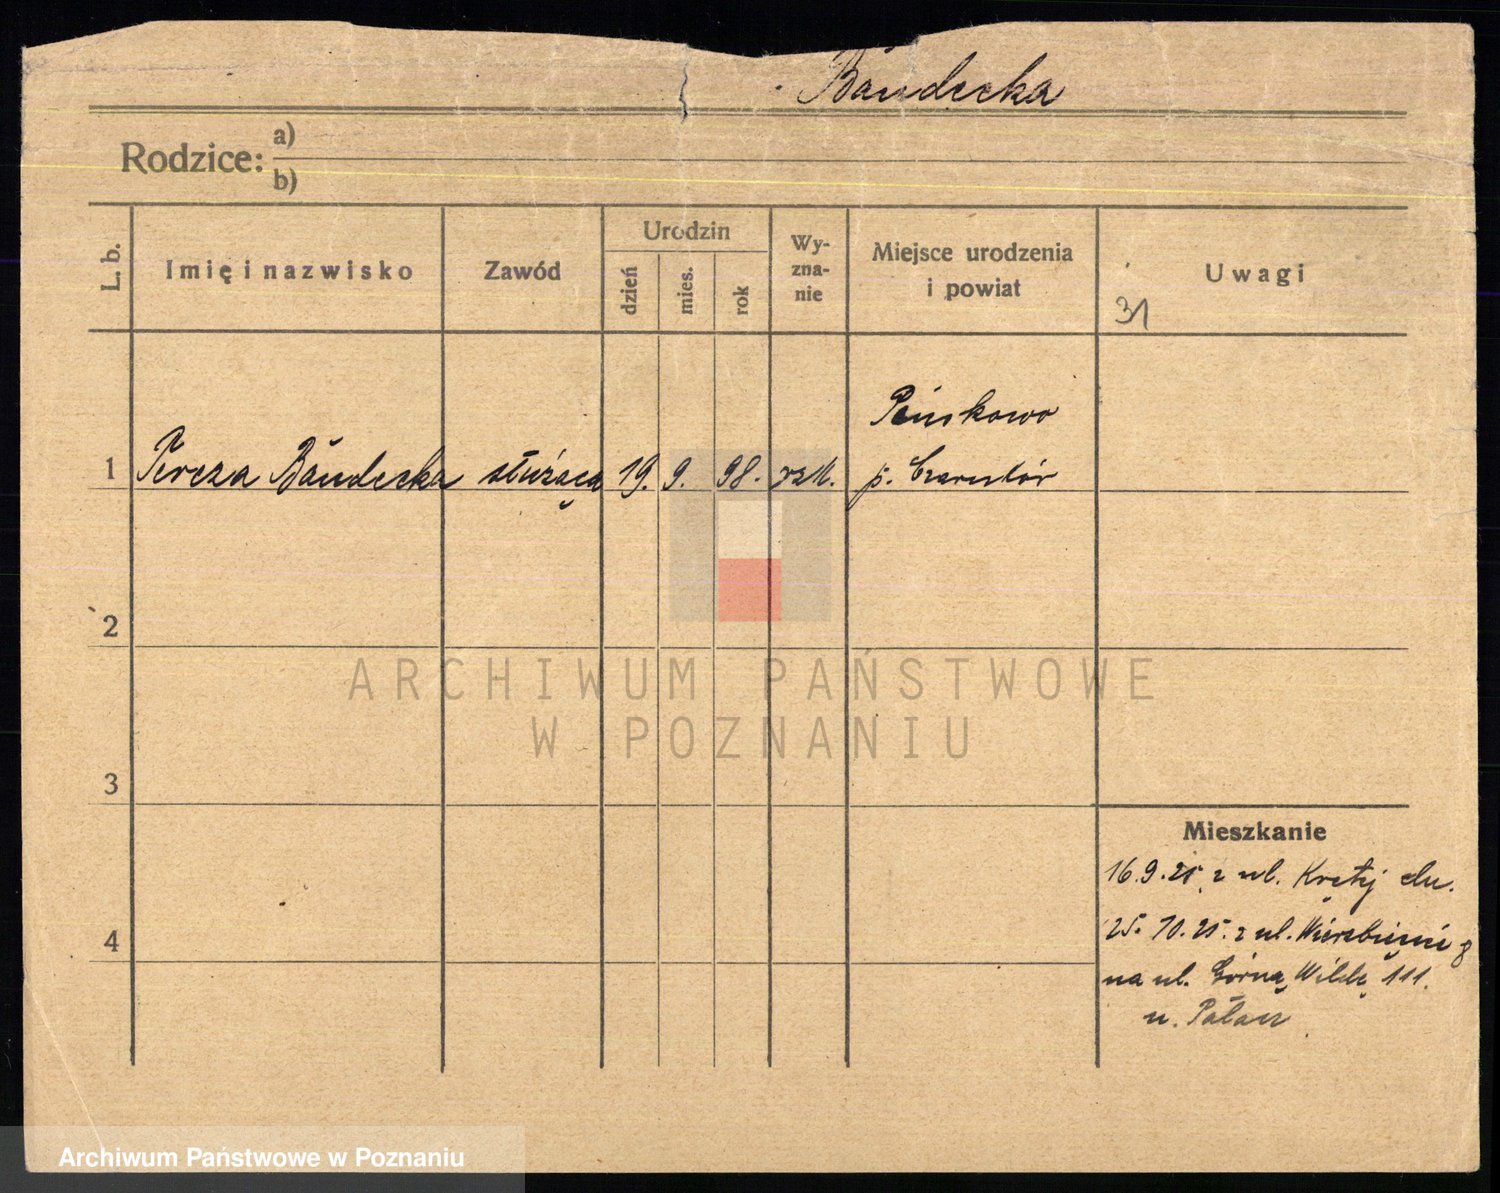 Bandecka
Rodzice: a)
b)
L. b.
Imię i nazwisko
Zawód
Urodzin
dzień
mies.
rok
Wy-
zna-
nie
Miejsce urodzenia
i powiat
Uwagi
31
1
Tereza Bandecka służąca 19. 9. 98. rzk.
Peńskowo
p. Czarnków
2
3
4
Mieszkanie
16.9.25. z ul. Krętej
25. 10. 25. z ul. Wierzbięcic 8
na ul. Górną Wildę 111.
u. Pałacz
ARCHIWUM PAŃSTWOWE
W POZNANIU
Archiwum Państwowe w Poznaniu